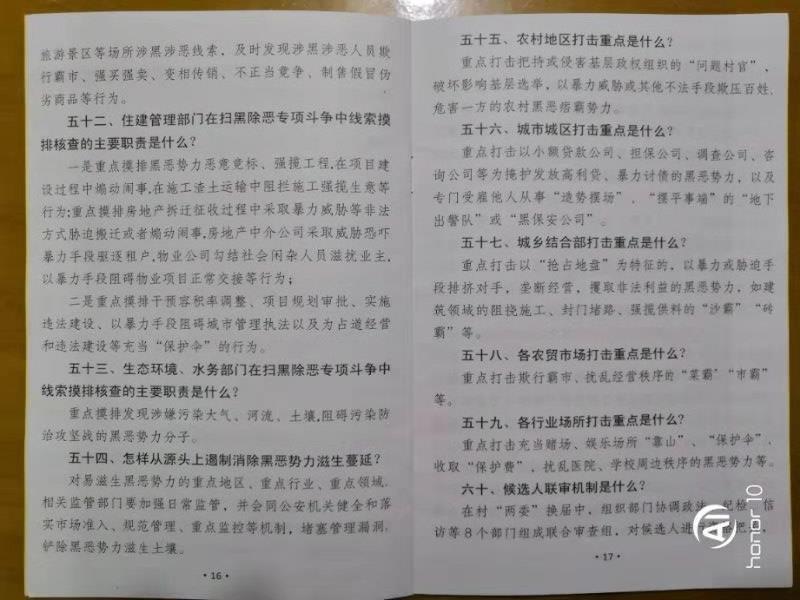 旅游景区等场所涉黑涉恶线索，及时发现涉黑涉恶人员欺
行霸市、强买强卖、变相传销、不正当竞争、制售假冒伪
劣商品等行为。
五十二、住建管理部门在扫黑除恶专项斗争中线索摸
排核查的主要职责是什么？
一是重点摸排黑恶势力恶意竞标、强揽工程,在项目建
设过程中煽动闹事,在施工渣土运输中阻拦施工强揽生意等
行为;重点摸排房地产拆迁征收过程中采取暴力威胁等非法
方式胁迫搬迁或者煽动闹事,房地产中介公司采取威胁恐吓
暴力手段驱逐租户,物业公司勾结社会闲杂人员滋扰业主,
以暴力手段阻碍物业项目正常交接等行为；
二是重点摸排干预容积率调整、项目规划审批、实施
违法建设、以暴力手段阻碍城市管理执法以及为占道经营
和违法建设等充当“保护伞”的行为。
五十三、生态环境、水务部门在扫黑除恶专项斗争中
线索摸排核查的主要职责是什么？
重点摸排发现涉嫌污染大气、河流、土壤,阻碍污染防
治攻坚战的黑恶势力分子。
五十四、怎样从源头上遏制消除黑恶势力滋生蔓延？
对易滋生黑恶势力的重点地区、重点行业、重点领域,
相关监管部门要加强日常监管，并会同公安机关健全和落
实市场准入、规范管理、重点监控等机制，堵塞管理漏洞,
铲除黑恶势力滋生土壤。
·16·
五十五、农村地区打击重点是什么？
重点打击把持或侵害基层政权组织的“问题村官”，
破坏影响基层选举，以暴力威胁或其他不法手段欺压百姓,
危害一方的农村黑恶痞霸势力。
五十六、城市城区打击重点是什么？
重点打击以小额贷款公司、担保公司、调查公司、咨
询公司等为掩护发放高利贷、暴力讨债的黑恶势力，以及
专门受雇他人从事“造势摆场”、“摆平事端”的“地下
出警队”或“黑保安公司”。
五十七、城乡结合部打击重点是什么？
重点打击以“抢占地盘”为特征的，以暴力或胁迫手
段排挤对手，垄断经营，攫取非法利益的黑恶势力，如建
筑领域的阻挠施工、封门堵路、强揽供料的“沙霸”“砖
霸”等。
五十八、各农贸市场打击重点是什么？
重点打击欺行霸市、扰乱经营秩序的“菜霸”“市霸”
等。
五十九、各行业场所打击重点是什么？
重点打击充当赌场、娱乐场所“靠山”、“保护伞”，
收取“保护费”，扰乱医院、学校周边秩序的黑恶势力等。
六十、候选人联审机制是什么？
在村“两委”换届中，组织部门协调政法、纪检、信
访等８个部门组成联合审查组，对候选人进行
·17·
AI
honor 10